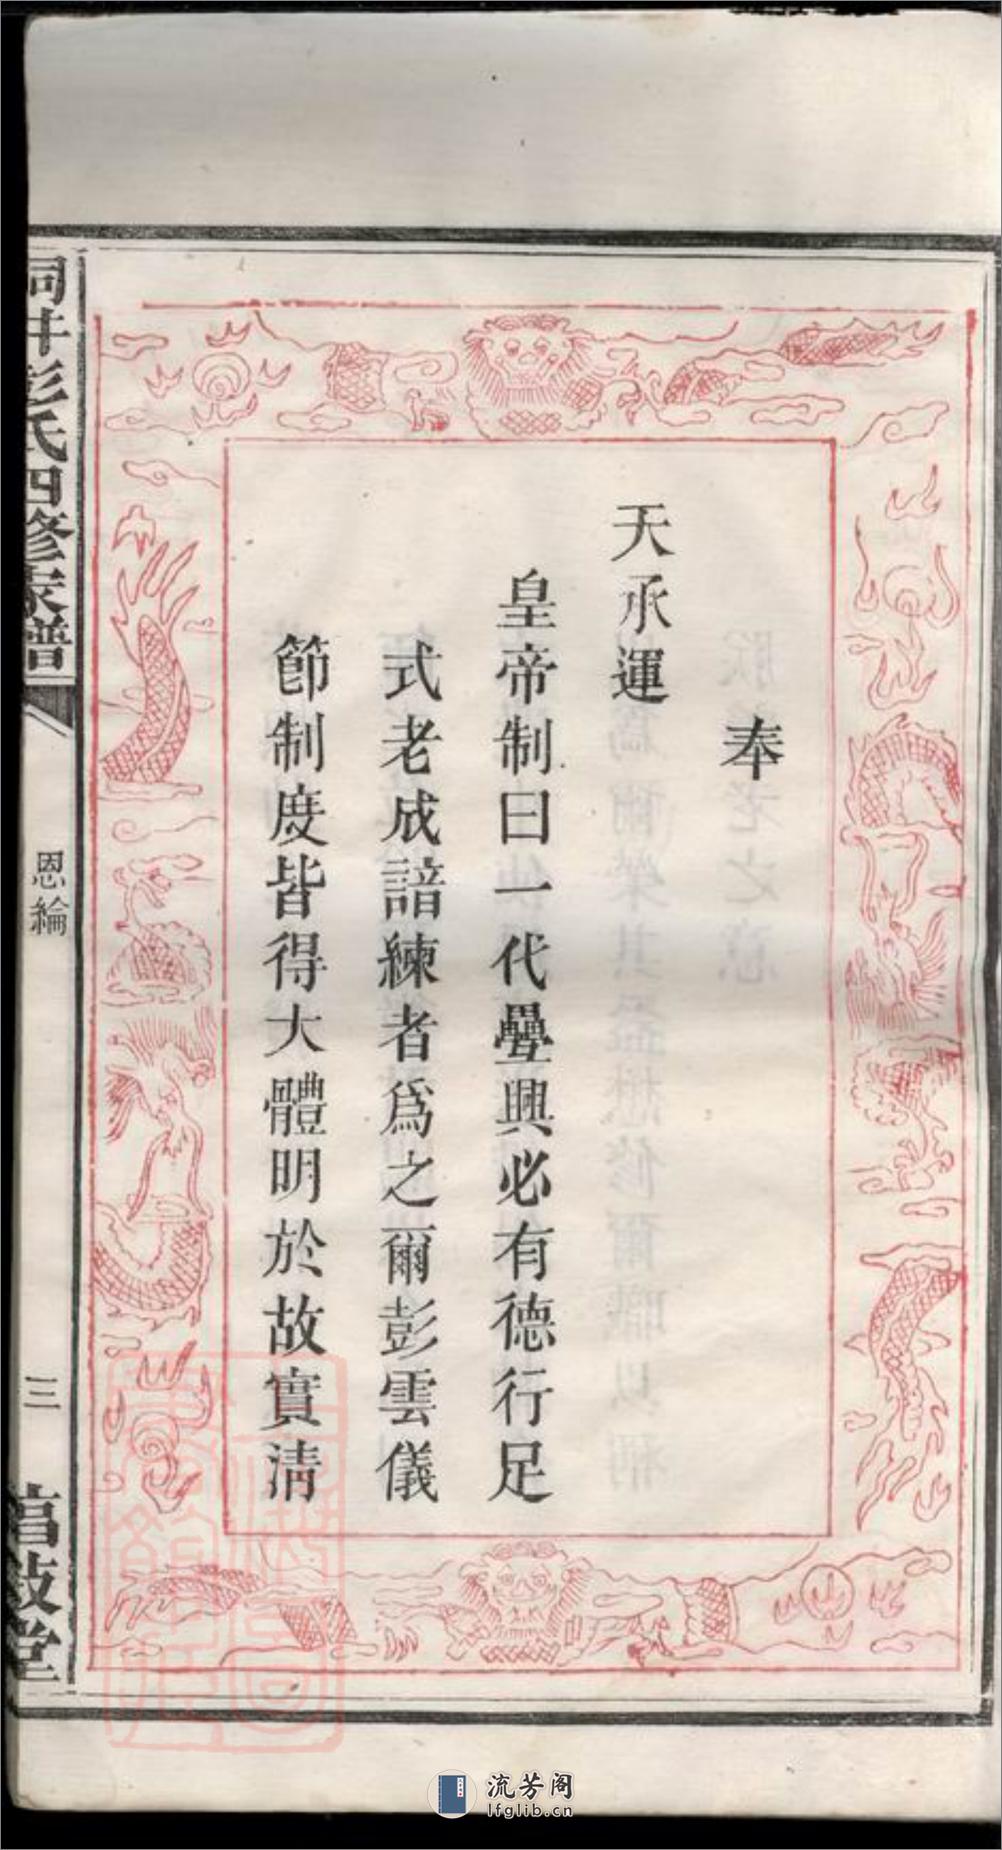 奉
天承運
皇帝制曰一代疊興必有德行足
式老成諳練者爲之爾彭雲儀
節制度皆得大體明於故實清
洞井彭氏四修家譜
恩綸
三
信鼓堂
流芳阁
lfglib.cn